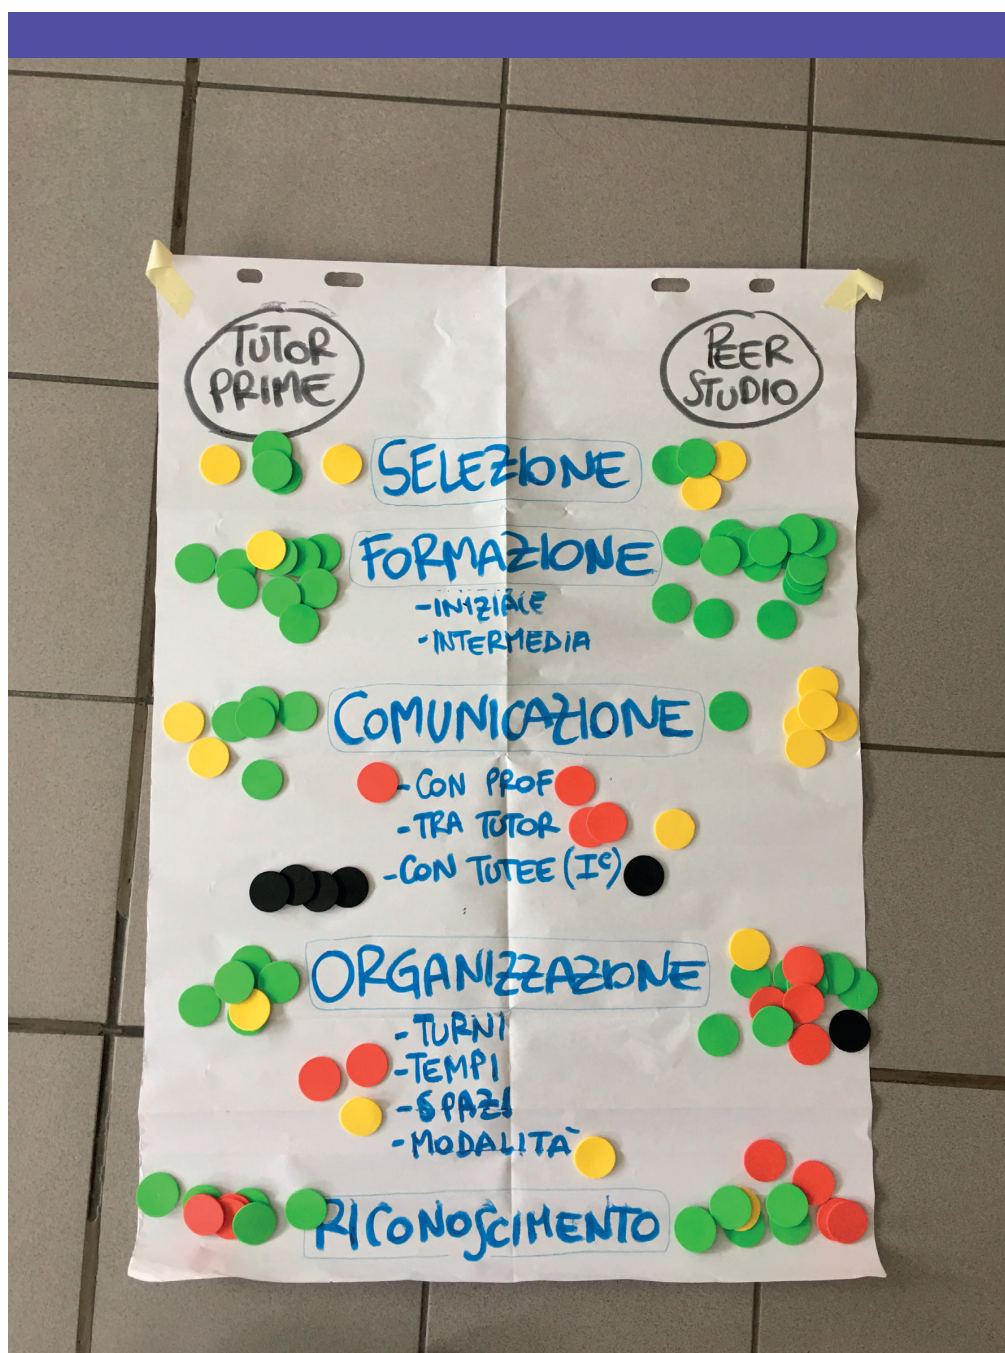 TUTOR
PRIME
PEER
STUDIO
SELEZIONE
FORMAZIONE
-INIZIALE
-INTERMEDIA
COMUNICAZIONE
-CON PROF
-TRA TUTOR
-CON TUTEE (Iᵉ)
ORGANIZZAZIONE
-TURNI
-TEMPI
-SPAZI
-MODALITÀ
RICONOSCIMENTO